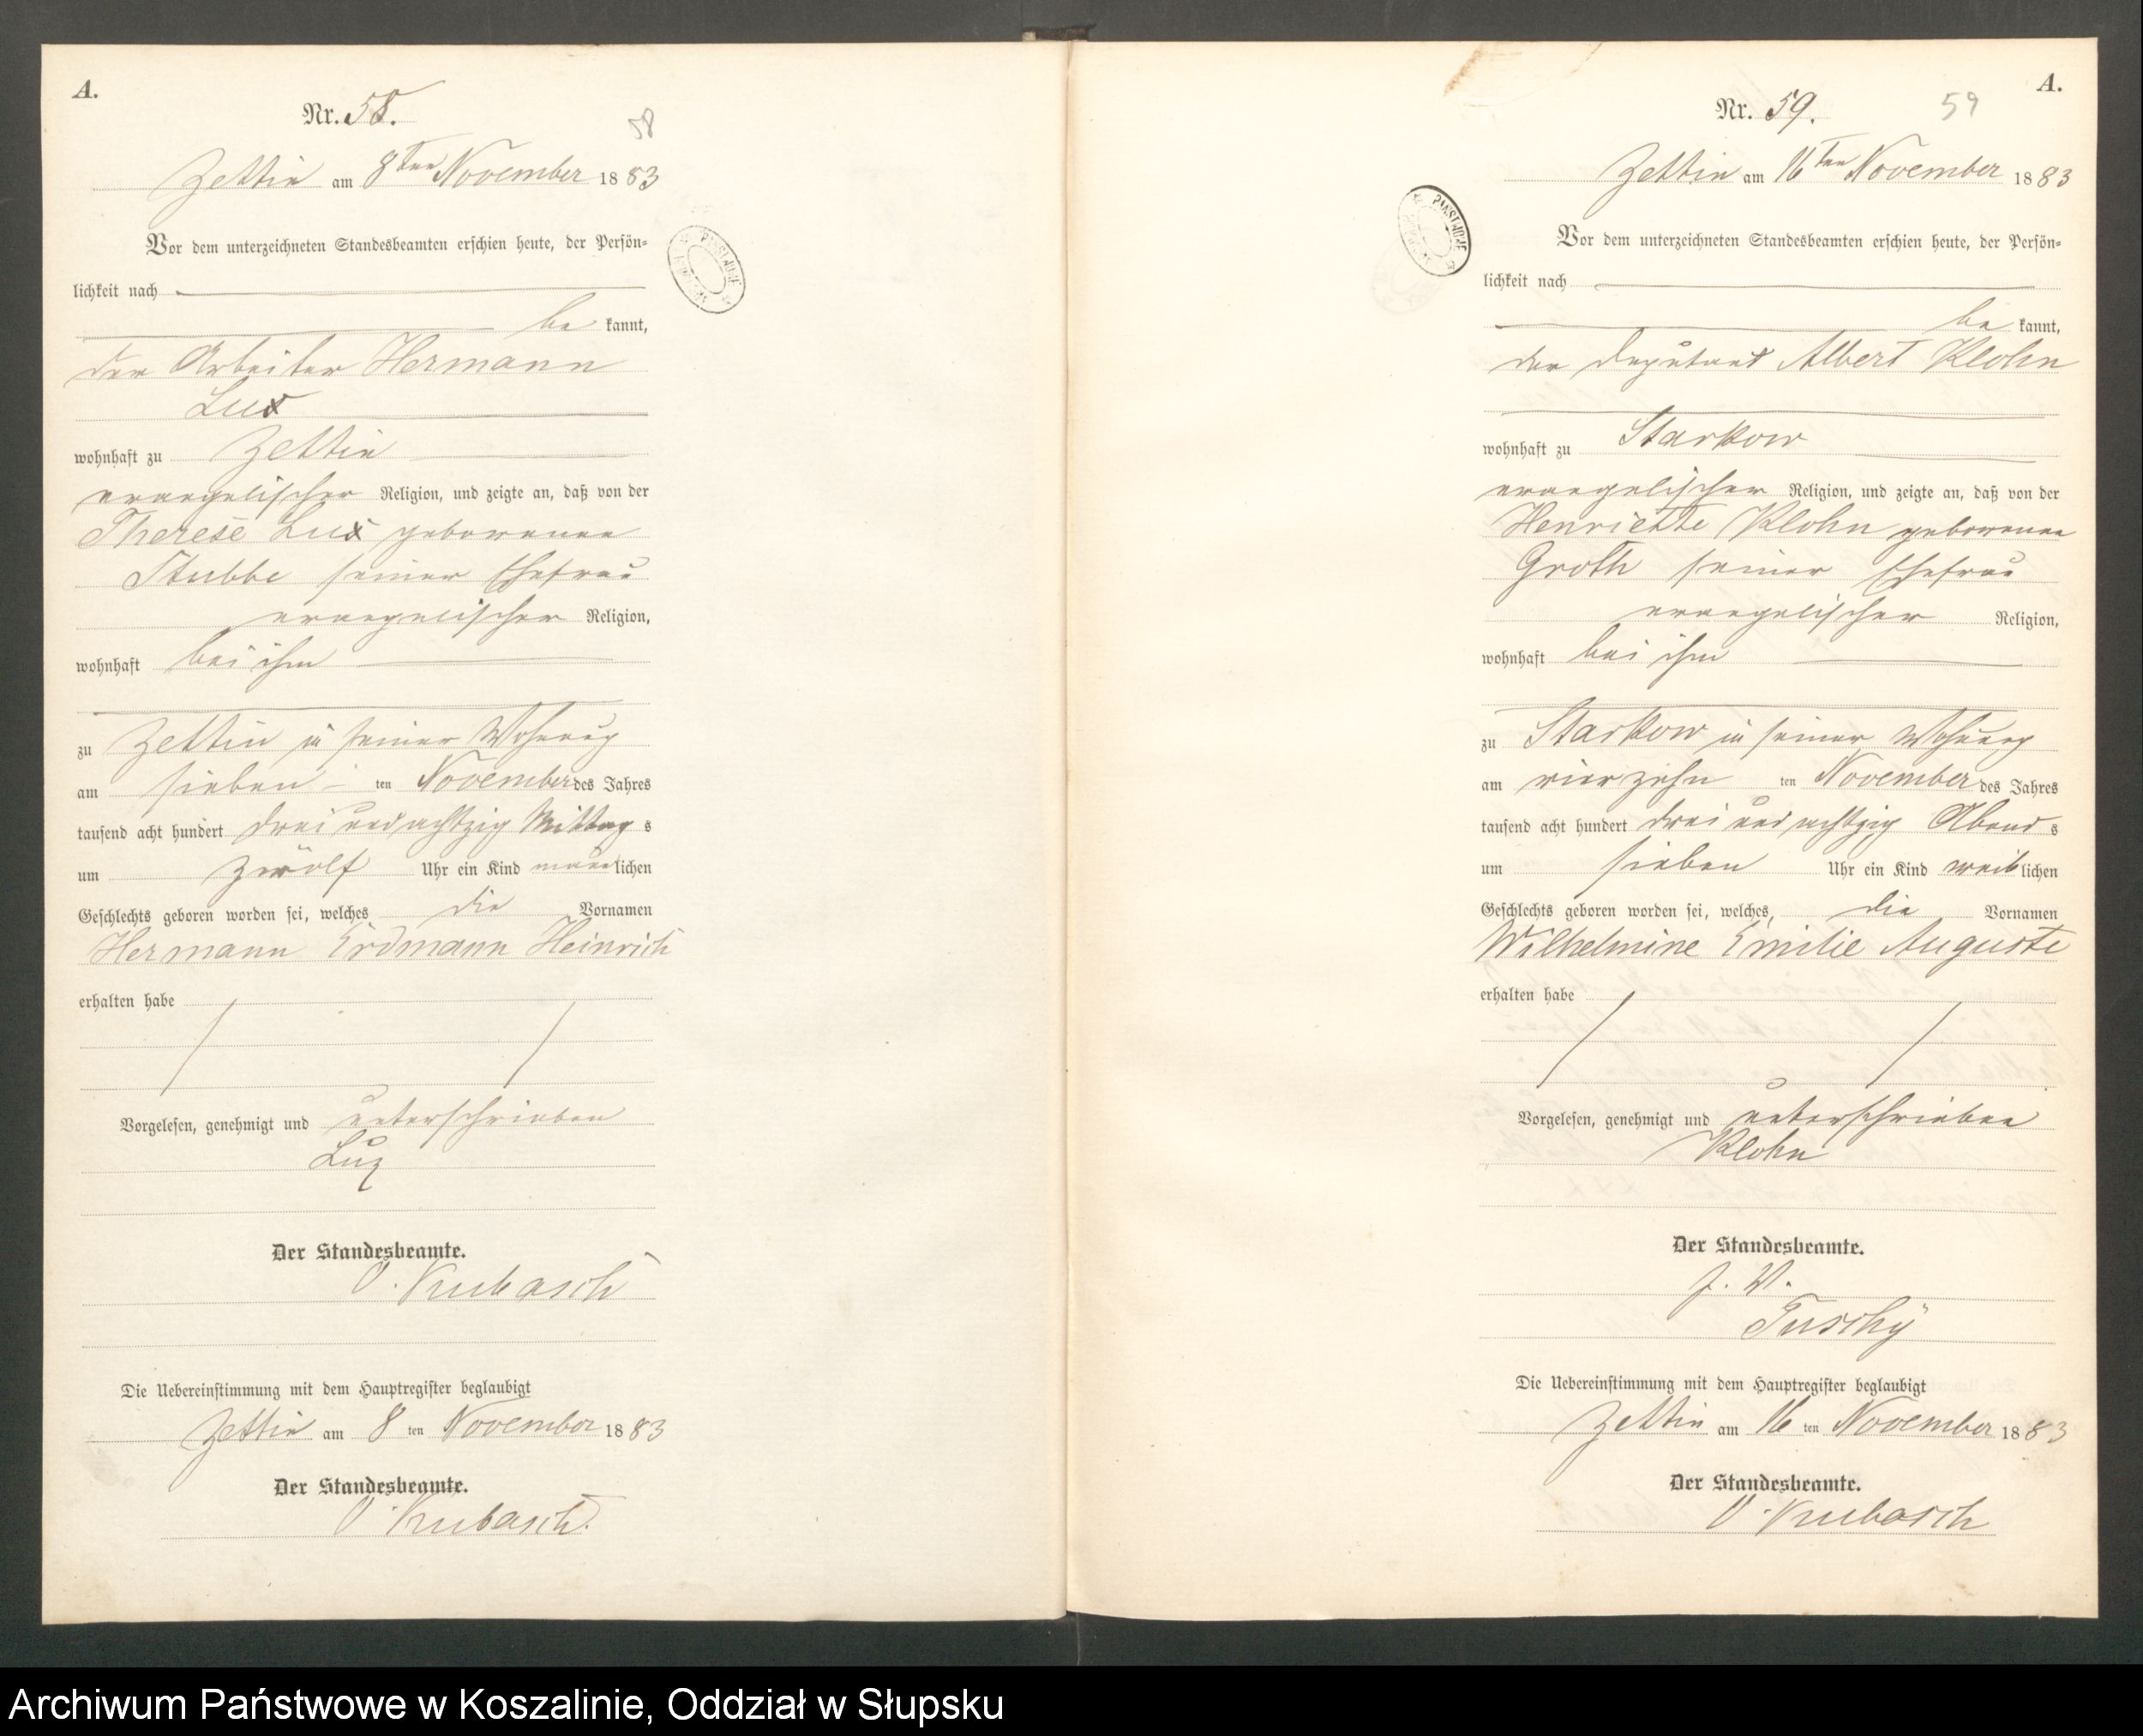 A.
Nr. 58.
58
Zettin am 8ten November 1883
Vor dem unterzeichneten Standesbeamten erschien heute, der Persön-
lichkeit nach
be kannt,
der Arbeiter Hermann
Lux
wohnhaft zu Zettin
evangelischer Religion, und zeigte an, daß von der
Therese Lux geborenen
Stubbe seiner Ehefrau
evangelischer Religion,
wohnhaft bei ihm
zu Zettin in seiner Wohnung
am sieben ten November des Jahres
tausend acht hundert drei und achtzig Mittag s
um zwölf Uhr ein Kind männlichen
Geschlechts geboren worden sei, welches die Vornamen
Hermann Erdmann Heinrich
erhalten habe
Vorgelesen, genehmigt und unterschrieben
Lux
Der Standesbeamte.
O. Kubasch
Die Uebereinstimmung mit dem Hauptregister beglaubigt
Zettin am 8 ten November 1883
Der Standesbeamte.
O. Kubasch.
A.
Nr. 59.
59
Zettin am 16ten November 1883
Vor dem unterzeichneten Standesbeamten erschien heute, der Persön-
lichkeit nach
be kannt,
der Deputant Albert Klohn
wohnhaft zu Starkow
evangelischer Religion, und zeigte an, daß von der
Henriette Klohn geborenen
Groth seiner Ehefrau
evangelischer Religion,
wohnhaft bei ihm
zu Starkow in seiner Wohnung
am vierzehn ten November des Jahres
tausend acht hundert drei und achtzig Abend s
um sieben Uhr ein Kind weiblichen
Geschlechts geboren worden sei, welches die Vornamen
Wilhelmine Emilie Auguste
erhalten habe
Vorgelesen, genehmigt und unterschrieben
Klohn
Der Standesbeamte.
J. V.
Tuschy
Die Uebereinstimmung mit dem Hauptregister beglaubigt
Zettin am 16 ten November 1883
Der Standesbeamte.
O. Kubasch
Archiwum Państwowe w Koszalinie, Oddział w Słupsku